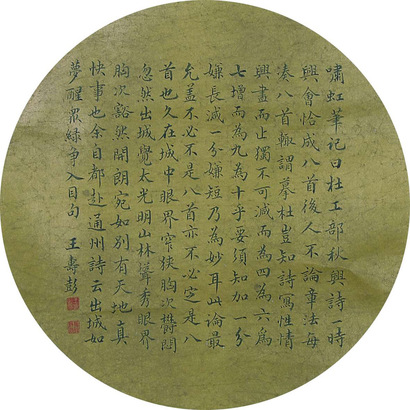 嘯虹筆記曰杜工部秋興詩一時
興會恰成八首後人不論章法每
湊八首輒謂摹杜豈知詩寫性情
興盡而止獨不可減而為四為六為
七增而為九為十乎要須知加一分
嫌長減一分嫌短乃為妙耳此論最
允蓋不必不是八首亦不必定是八
首也久在城中眼界窄狹胸次欝悶
忽然出城覺太光明山林聳秀眼界
胸次豁然開朗宛如別有天地真
快事也余自都赴通州詩云出城如
夢醒眾綠争入目句
王壽彭